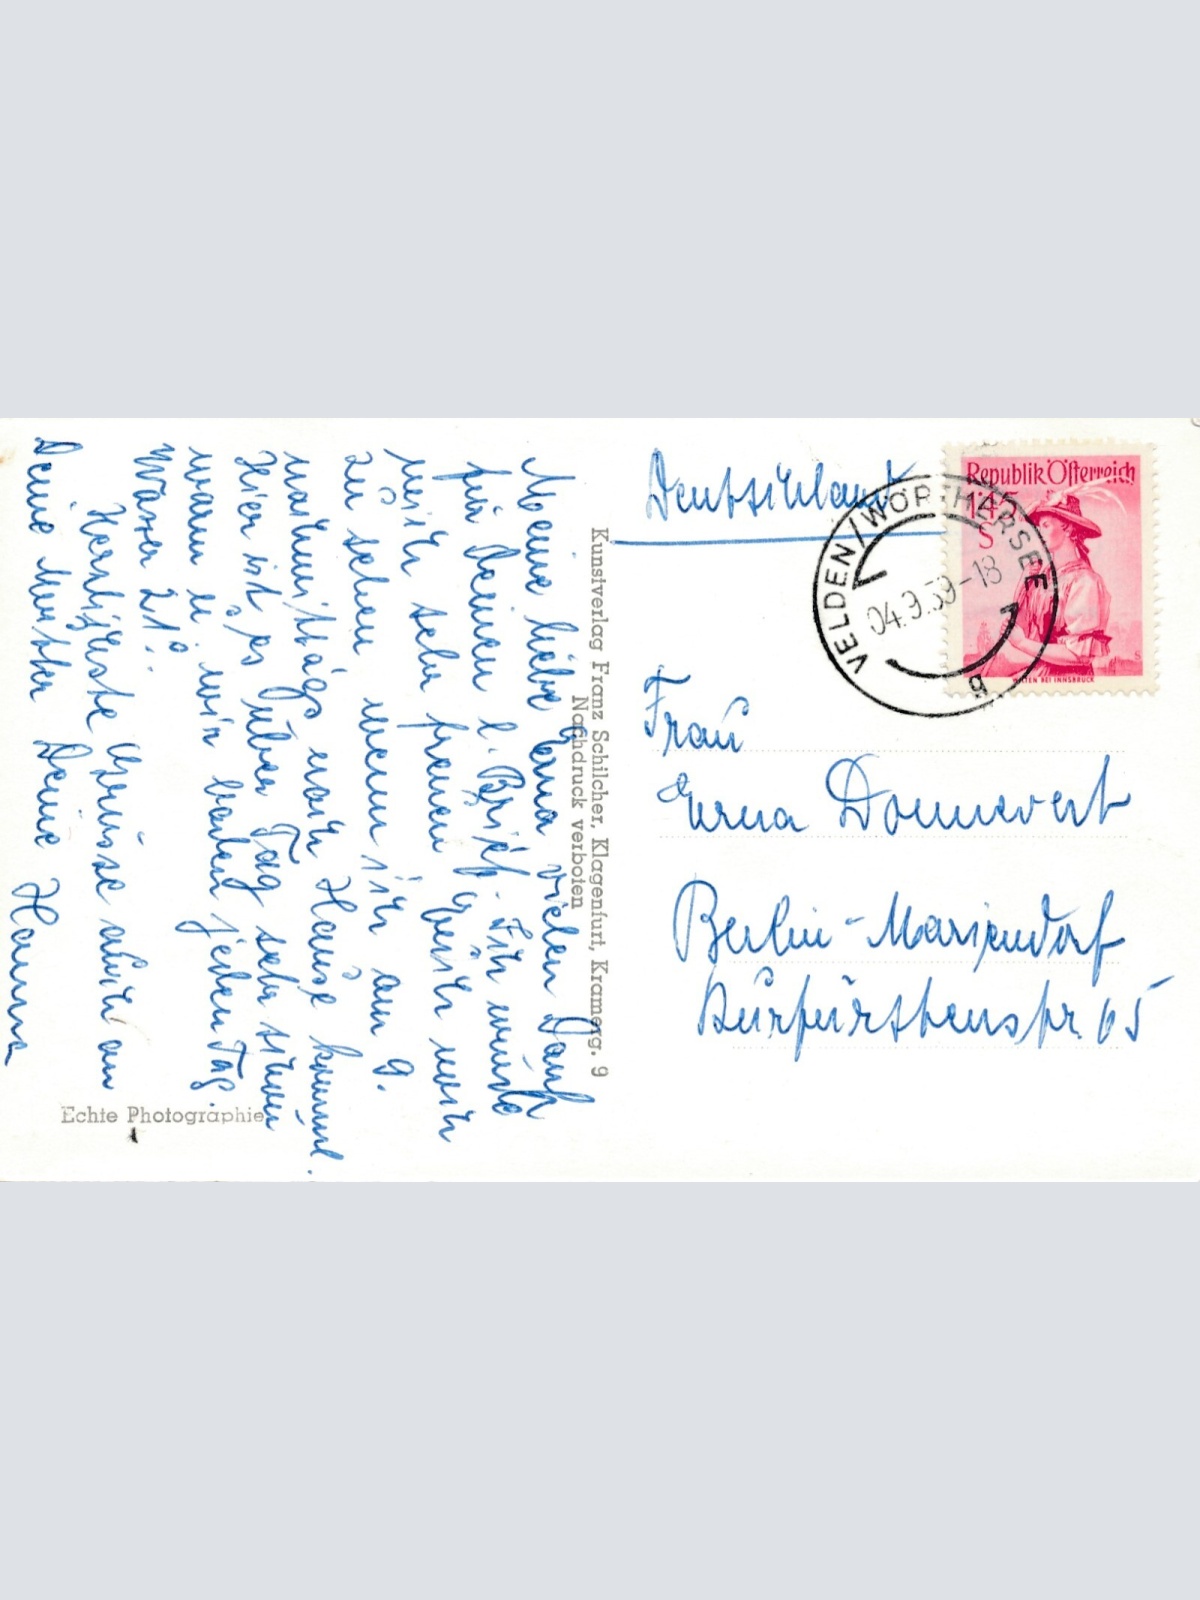 Meine liebe Erna vielen Dank
für Deinen l. Brief. Ich würde
mich sehr freuen Euch noch
zu sehen wenn ich am 9.
nachmittags nach Hause komme.
Hier ist es über Tag sehr schön
warm u. wir baden jeden Tag.
Wasser 21°.
Herzlichste Grüsse auch an
Deine Mutter Deine Hanna
Echte Photographie
Kunstverlag Franz Schilcher, Klagenfurt, Kramerg. 9
Nachdruck verboten
Deutschland
Republik Österreich
1'45
S
BEI INNSBRUCK
VELDEN/WÖRTHERSEE
04.9.59-18
Frau
Erna Donnevert
Berlin-Mariendorf
Kurfürstenstr. 65